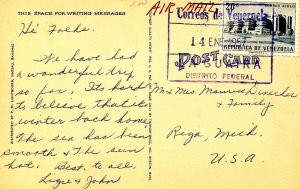 THIS SPACE FOR WRITING MESSAGES
AIR MAIL
Hi Folks.
We have had
a wonderful trip
so far. Its hard
to believe that its
winter back home.
The sea has been
smooth & the sun
hot. Best to all,
& John
Correos de Venezuela
14 ENE 1957
LA GUAIRA
DISTRITO FEDERAL
REPUBLICA DE VENEZUELA
POST CARD
Mr & Mrs Maurice
& Family
Mich.
U.S.A.